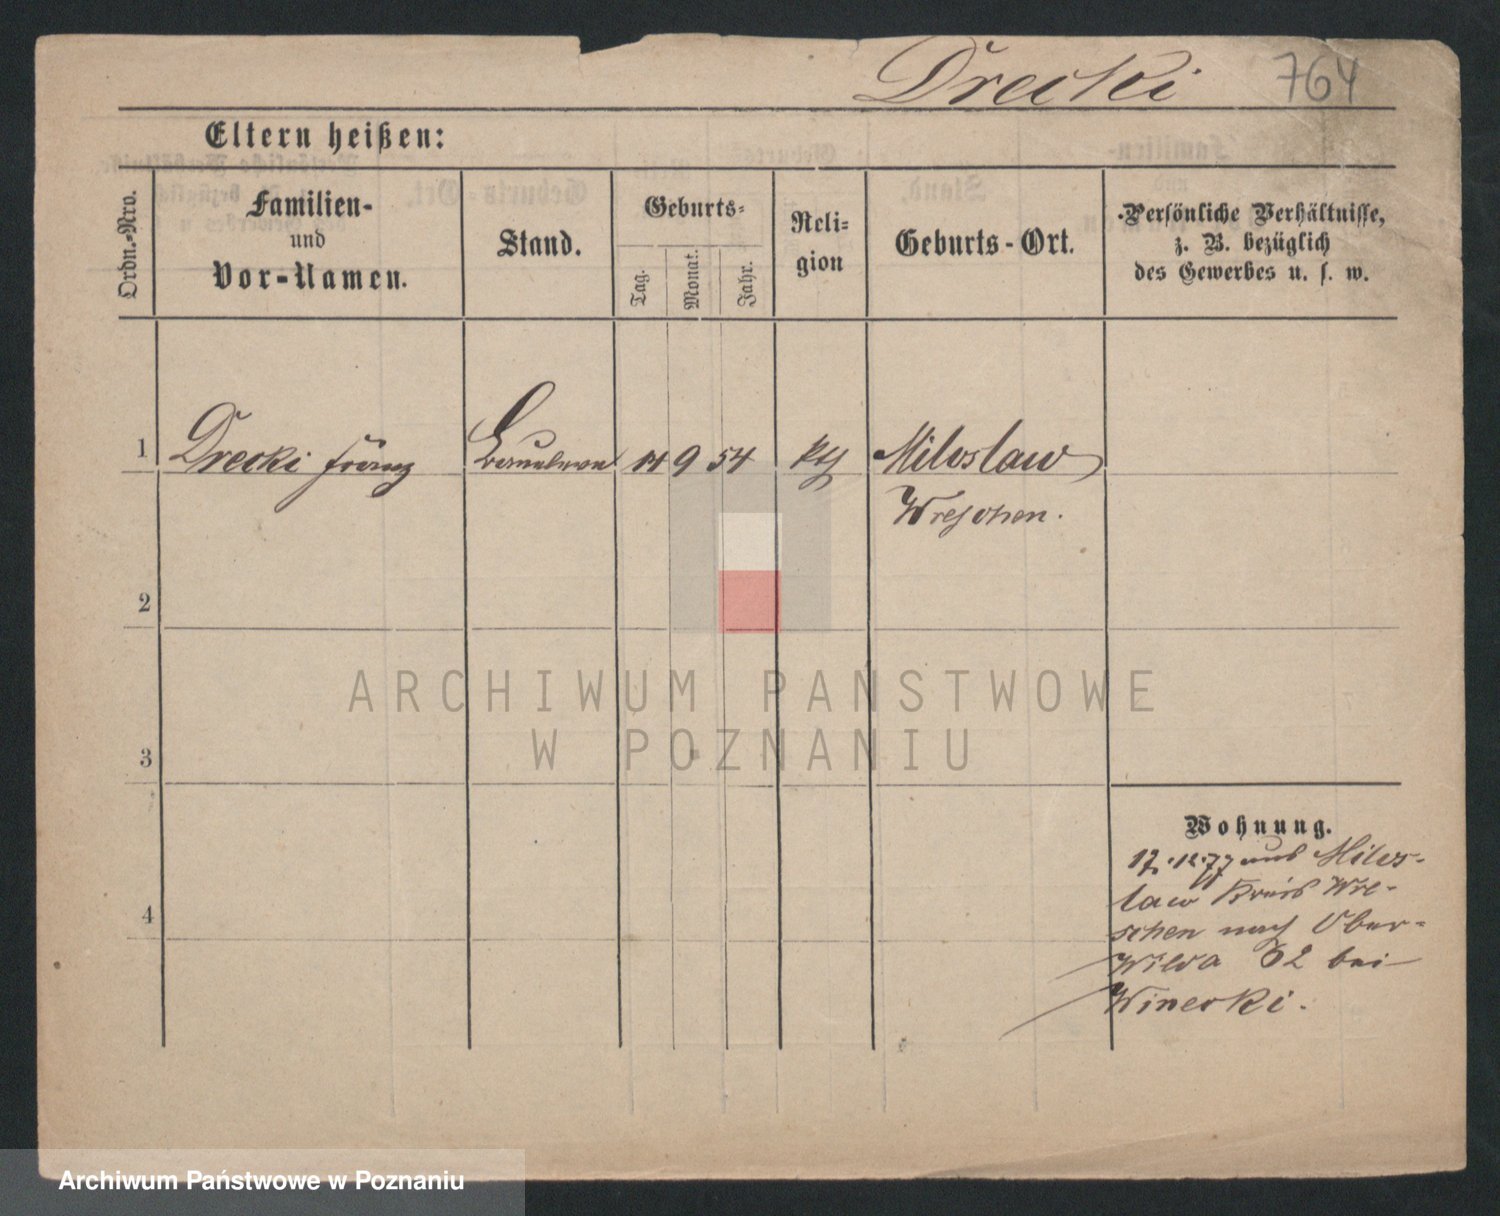 Drecki 764
Eltern heißen:
Ordn.-Nro.
Familien-
und
Vor-Namen.
Stand.
Geburts-
Tag.
Monat.
Jahr.
Reli-
gion
Geburts-Ort.
Persönliche Verhältnisse,
z. B. bezüglich
des Gewerbes u. s. w.
1 Drecki Franz 9 54 kth Miloslaw
Wreschen.
2
3
4
Wohnung.
17.12.77 aus Milos-
law Kreis Wre-
schen nach Ober-
Wilda 62 bei
Winecki.
ARCHIWUM PAŃSTWOWE
W POZNANIU
Archiwum Państwowe w Poznaniu